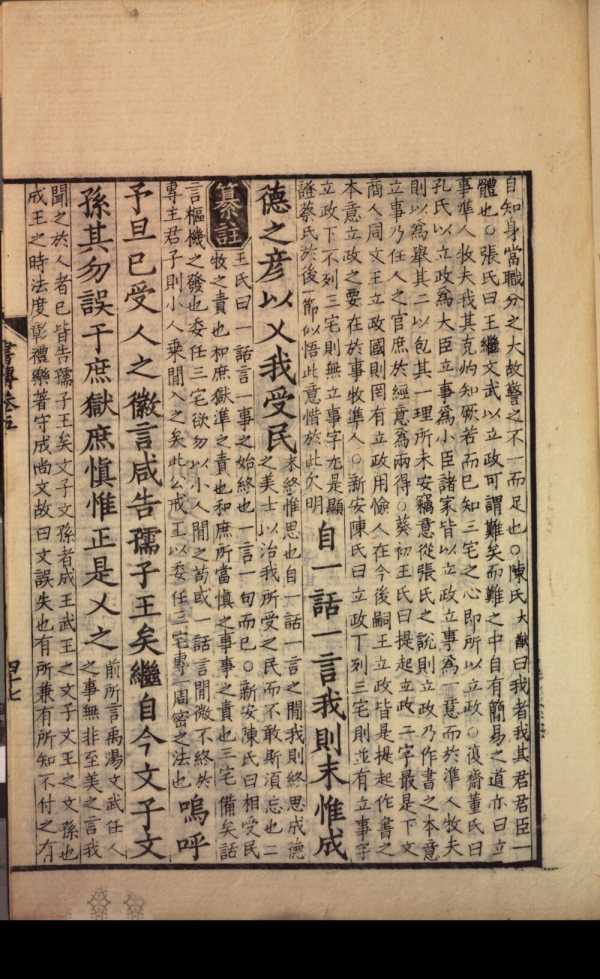 自知身當職分之大故警之不一而足也○陳氏大猷曰我者我其君君臣一
體也○張氏曰王繼文武以立政可謂難矣而難之中自有簡易之道亦曰立
事準人牧夫我其克灼知厥若而已知三宅之心即所以立政○復齋董氏曰
孔氏以立政為大臣立事為小臣諸家皆以立政立事為一意而於準人牧夫
則以為舉其二以包其一理所未安竊意從張氏之說則立政乃作書之本意
立事乃任人之官庶於經意為兩得○葵初王氏曰提起立政二字最是下文
商人周文王立政國則罔有立政用憸人在今後嗣王立政皆是提起作書之
本意立政之要在於事牧準人○新安陳氏曰立政下列三宅則並有立事字
立政下不列三宅則無立事字尤是顯
證蔡氏於後一節似悟此意惜於此欠明
自一話一言我則末惟成
德之彥以乂我受民
末終惟思也自一話一言之間我則終思成德
之美士以治我所受之民而不敢斯須忘也二
纂註
王氏曰一話言一事之始終也一言一句而已○新安陳氏曰相受民
牧之責也和庶獄準之責也和庶所當慎之事事之責也三宅備矣話
言樞機之發也委任三宅欲勿以小人間之苟或一話言間微不終於
專主君子則小人乘間入之矣此公戒王以委任三宅專一周密之法也
嗚呼
予旦已受人之徽言咸告孺子王矣繼自今文子文
孫其勿誤于庶獄庶慎惟正是乂之
前所言禹湯文武任人
之事無非至美之言我
聞之於人者已皆告孺子王矣文子文孫者成王武王之文子文王之文孫也
成王之時法度彰禮樂著守成尚文故曰文誤失也有所兼有所知不付之有
書傳卷五
四十七